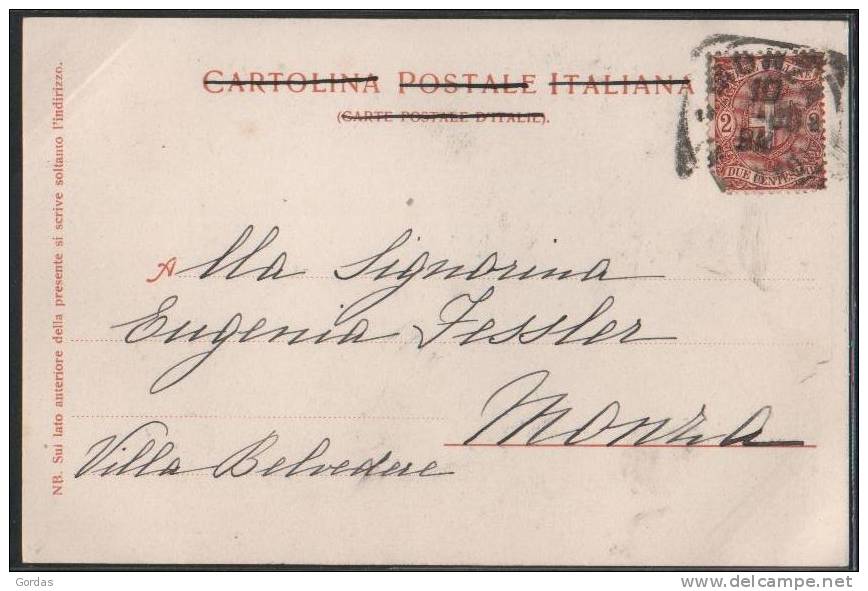 CARTOLINA POSTALE ITALIANA
(CARTE POSTALE D'ITALIE).
2 2
DUE CENTESIMI
Alla Signorina
Eugenia Fessler
Monza
Villa Belvedere
NB. Sul lato anteriore della presente si scrive soltanto l'indirizzo.
Gordas
delcampe.net